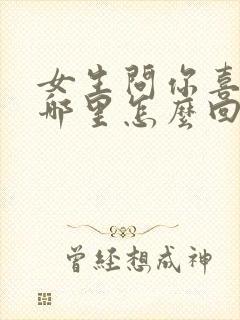 女生問你喜
哪里怎麼回
曾經想成神